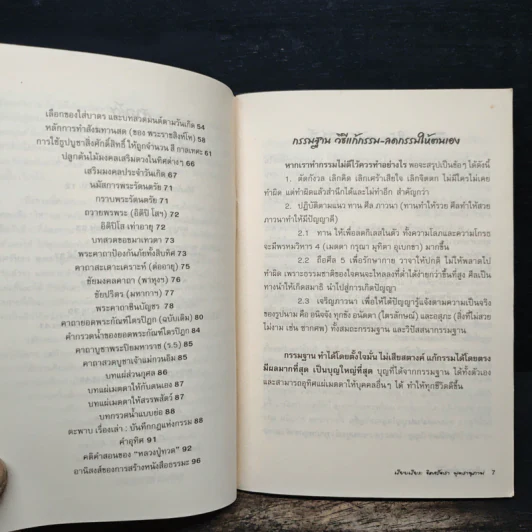 เลือกของใส่บาตร และบทสวดมนต์ตามวันเกิด 54
หลักการทำสังฆทานสด (ของ พระราชสิงห์โท) 60
การใช้ธูปบูชาสิ่งศักดิ์สิทธิ์ ให้ถูกจำนวน สี กาลเทศะ 61
ปลูกต้นไม้มงคลเสริมดวงในทิศต่างๆ 66
เสริมมงคลประจำวันเกิด 67
นมัสการพระรัตนตรัย 71
กราบพระรัตนตรัย 71
ถวายพรพระ (อิติปิ โสฯ) 71
อิติปิโส เท่าอายุ 72
บทสวดขอขมาเทวดา 72
พระคาถาป้องกันภัยทั้งสิบทิศ 73
คาถาสะเดาะเคราะห์ (ต่ออายุ) 75
ชัยมงคลคาถา (พาหุงฯ) 76
ชัยปริตร (มหากาฯ) 76
พระคาถาชินบัญชร 77
คาถายอดพระกัณฑ์ไตรปิฎก (ฉบับเดิม) 80
คำกรวดน้ำของยอดพระกัณฑ์ไตรปิฎก 85
คาถาบูชาพระปิยมหาราช (ร.5) 86
คาถาสวดบูชาเจ้าแม่กวนอิม 86
บทแผ่ส่วนกุศล 86
บทแผ่เมตตาให้กับตนเอง 87
บทแผ่เมตตาให้สรรพสัตว์ 87
บทกรวดน้ำแบบย่อ 88
ตะพาบ เรื่องเล่า : บันทึกกฎแห่งกรรม 88
คำอุทิศ 91
คติคำสอนของ "หลวงปู่ทวด" 92
อานิสงส์ของการสร้างหนังสือธรรมะ 96
กรรมฐาน วิธีแก้กรรม-ลดกรรมให้ตนเอง
หากเราทำกรรมไม่ดีไว้ควรทำอย่างไร พอจะสรุปเป็นข้อๆ ได้ดังนี้
1. ตัดกังวล เลิกคิด เลิกเศร้าเสียใจ เลิกจิตตก ไม่มีใครไม่เคย
ทำผิด แต่ทำผิดแล้วสำนึกได้และไม่ทำอีก สำคัญกว่า
2. ปฏิบัติตามแนว ทาน ศีล ภาวนา (ทานทำให้รวย ศีลทำให้สวย
ภาวนาทำให้มีปัญญาดี)
2.1 ทาน ให้เพื่อลดกิเลสในตัว ทั้งความโลภและความโกรธ
จะมีพรหมวิหาร 4 (เมตตา กรุณา มุทิตา อุเบกขา) มากขึ้น
2.2 ถือศีล 5 เพื่อรักษากาย วาจาให้ปกติ ไม่ให้พลาดไป
ทำผิด เพราะธรรมชาติของใจคนจะไหลลงที่ต่ำได้ง่ายกว่าขึ้นที่สูง ศีลเป็น
ทางนำให้เกิดสมาธิ นำไปสู่การเกิดปัญญา
2.3 เจริญภาวนา เพื่อให้ได้ปัญญารู้แจ้งตามความเป็นจริง
ของรูปนาม คือ อนิจจัง ทุกขัง อนัตตา (ไตรลักษณ์) และอสุภะ (สิ่งที่ไม่สวย
ไม่งาม เช่น ซากศพ) ทั้งสมถะกรรมฐาน และวิปัสสนากรรมฐาน
กรรมฐาน ทำได้โดยตั้งใจมั่น ไม่เสียสตางค์ แก้กรรมได้โดยตรง
มีผลมากที่สุด เป็นบุญใหญ่ที่สุด บุญที่ได้จากกรรมฐาน ได้ทั้งตัวเอง
และสามารถอุทิศแผ่เมตตาให้บุคคลอื่นๆ ได้ ทำให้ทุกชีวิตดีขึ้น
7